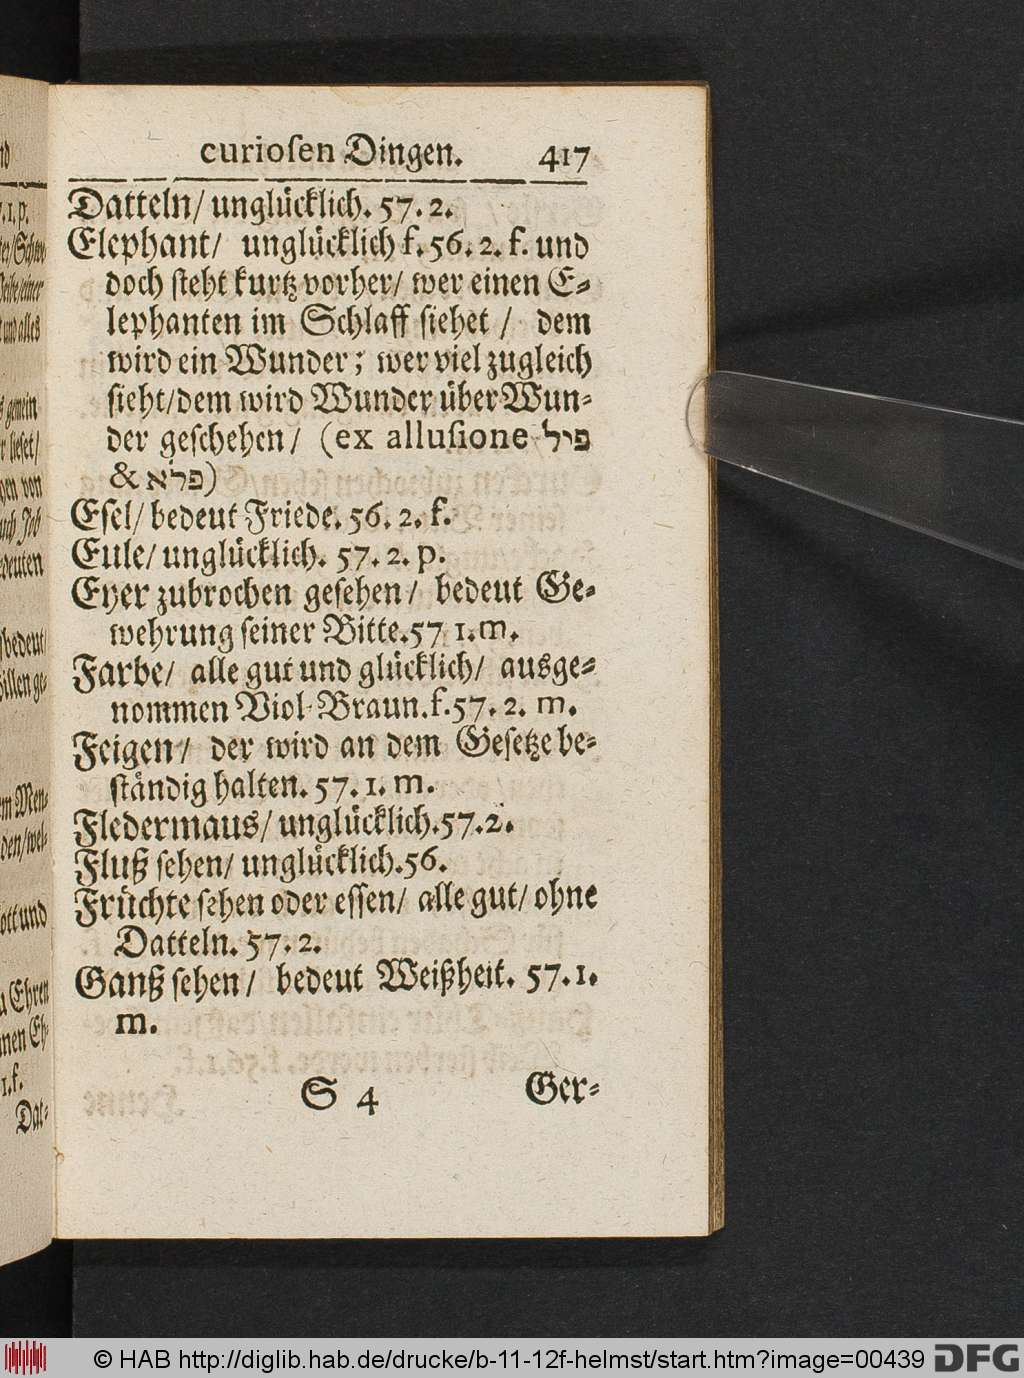 curioſen Dingen. 417
Datteln/ unglücklich. 57. 2.
Elephant/ unglücklich f. 56. 2. f. und
doch ſteht kurtz vorher/ wer einen E-
lephanten im Schlaff ſiehet / dem
wird ein Wunder; wer viel zugleich
ſieht/dem wird Wunder über Wun-
der geſchehen/ (ex alluſione פיל
& פלא)
Eſel/ bedeut Friede. 56. 2. f.
Eule/ unglücklich. 57. 2. p.
Eyer zubrochen geſehen/ bedeut Ge-
wehrung ſeiner Bitte.57 1. m.
Farbe/ alle gut und glücklich/ ausge-
nommen Viol-Braun.f.57. 2. m.
Feigen/ der wird an dem Geſetze be-
ſtändig halten. 57. 1. m.
Fledermaus/ unglücklich.57.2.
Fluß ſehen/ unglücklich.56.
Früchte ſehen oder eſſen/ alle gut/ ohne
Datteln. 57. 2.
Ganß ſehen/ bedeut Weißheit. 57. 1.
m.
S 4 Ger-
gemein
lieſet/
gen von
deuten
bedeut/
ott und
Ehren
1. f.
Dat-
© HAB http://diglib.hab.de/drucke/b-11-12f-helmst/start.htm?image=00439 DFG